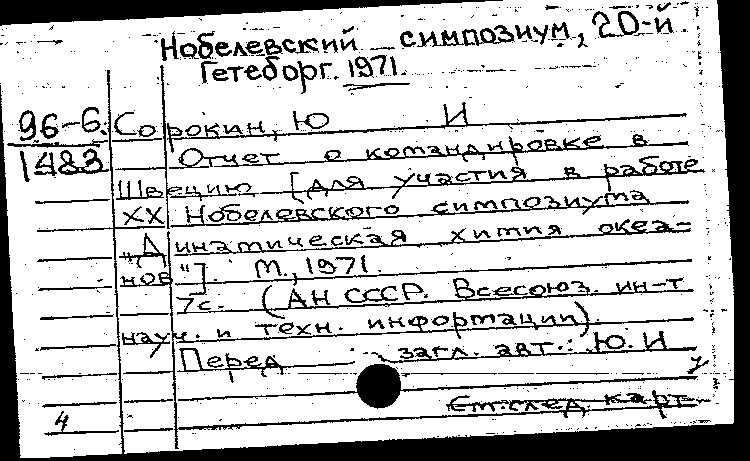 Нобелевский симпозиум, 20-й.
Гетеборг. 1971.
96-6. Сорокин, Ю И
1483 Отчет о командировке в
Швецию [для участия в работе
XX Нобелевского симпозиума
"Динамическая химия океа-
нов"]. М., 1971.
7с. (АН СССР. Всесоюз. ин-т
науч. и техн. информации).
Перед загл. авт.: Ю. И
См. след. карт.
4